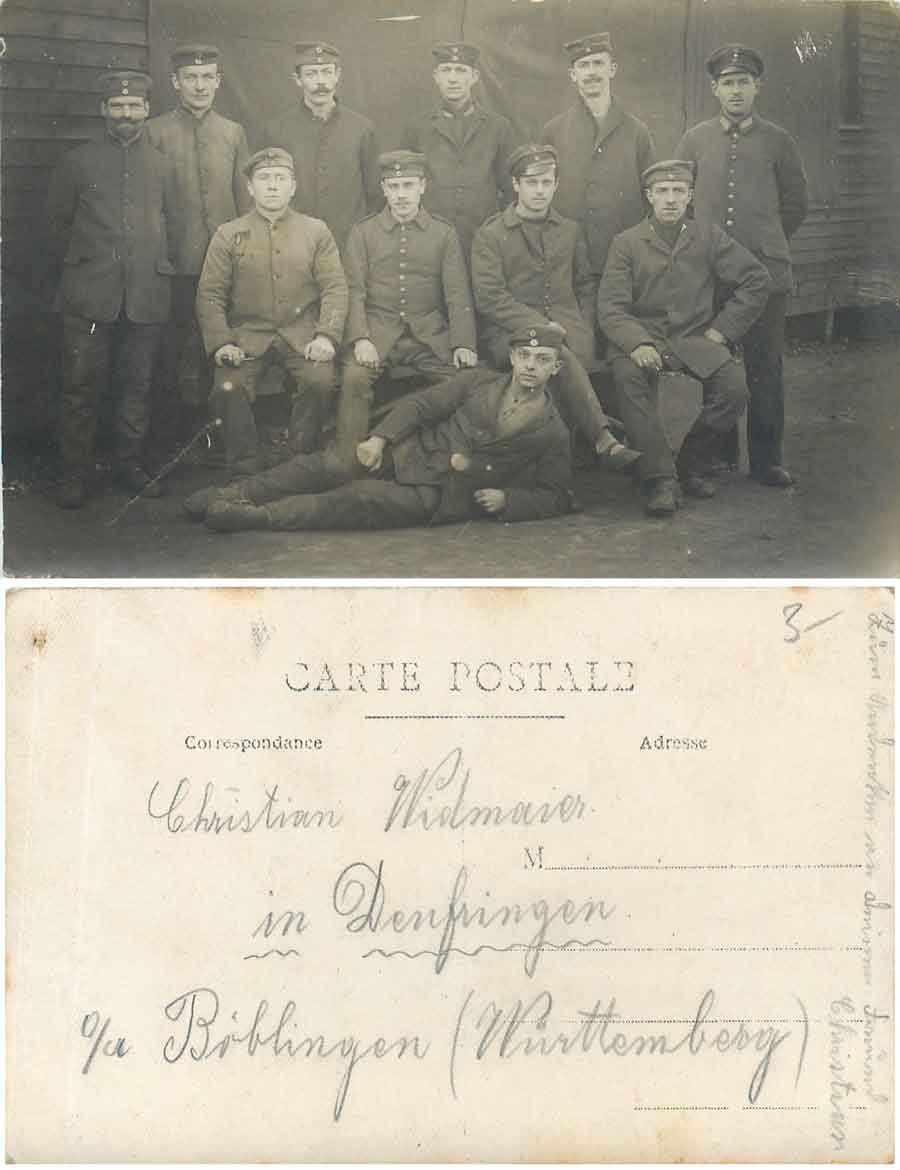 3-
CARTE POSTALE
Correspondance
Adresse
Christian Widmaier.
M
in Deufringen.
o/a Böblingen (Württemberg)
Zum Andenken an deinen Freund
Christian